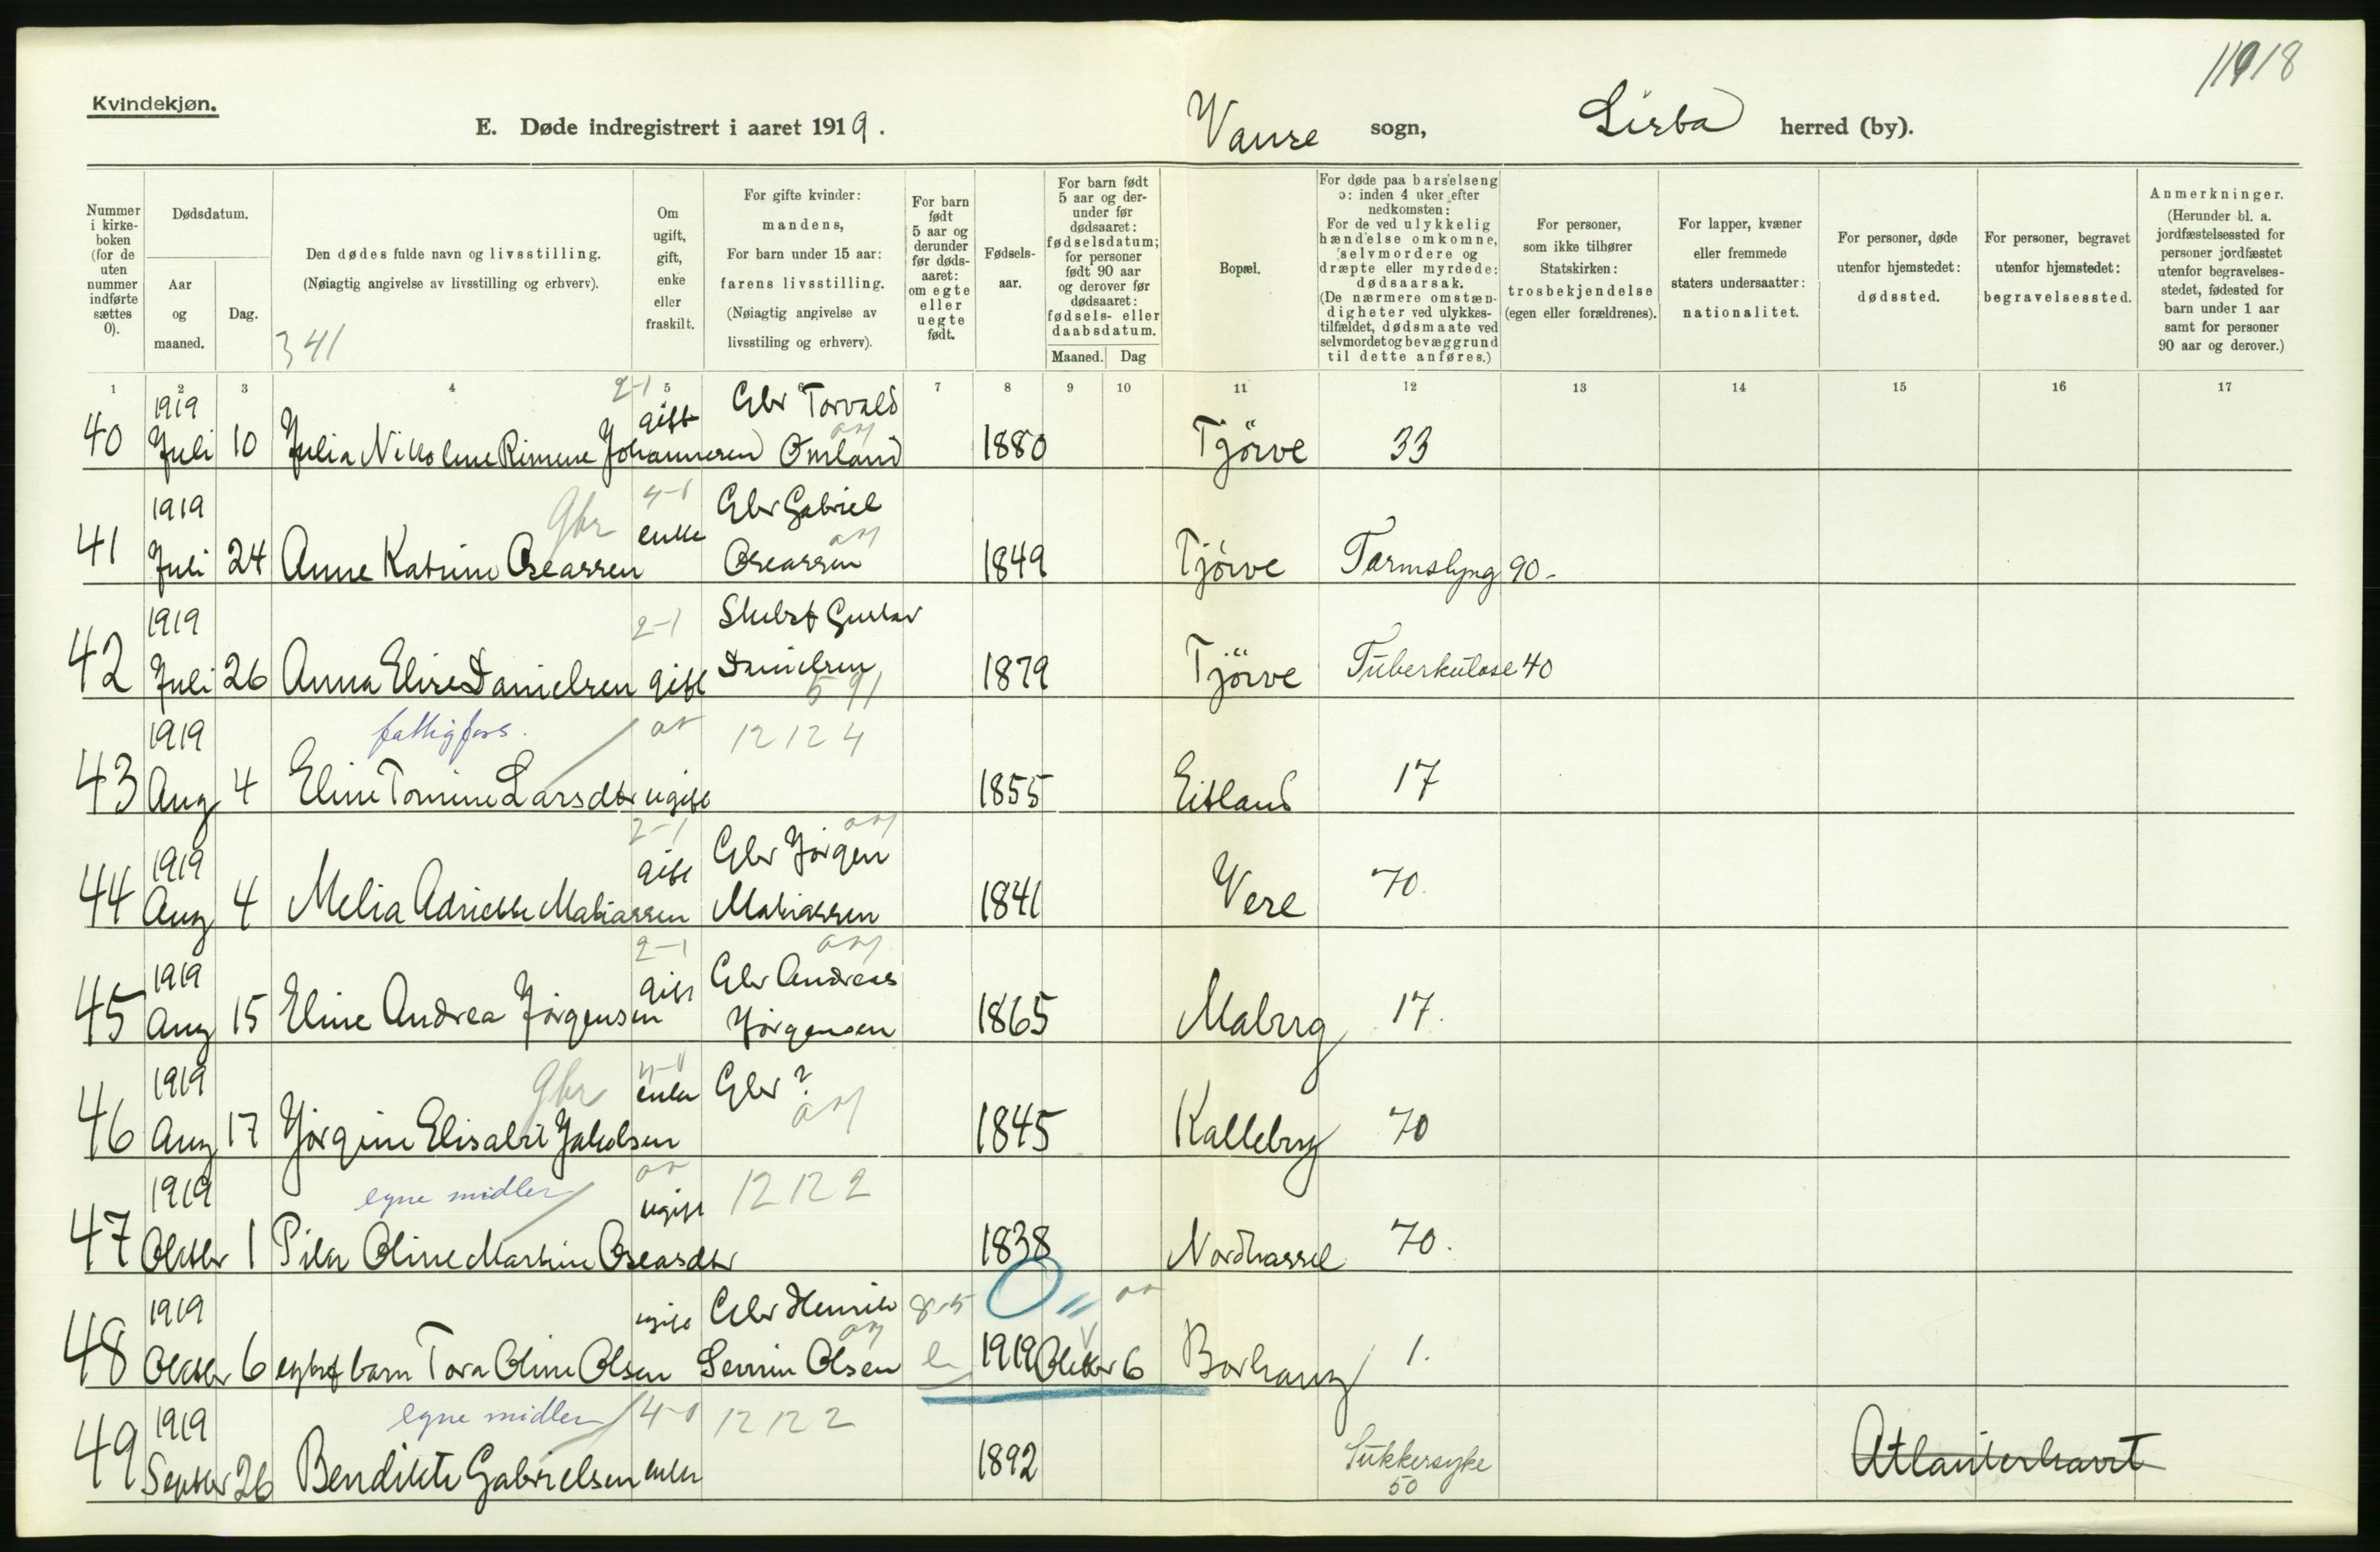 11918
Kvindekjøn.
E. Døde indregistrert i aaret 1919. Vanse sogn, Lista herred (by).
Nummer i kirkeboken (for de uten nummer indførte sættes 0).
Dødsdatum.
Aar og maaned.
Dag.
Den dødes fulde navn og livsstilling.
(Nøiagtig angivelse av livsstilling og erhverv).
341
Om ugift, gift, enke eller fraskilt.
For gifte kvinder: mandens,
For barn under 15 aar: farens livsstilling.
(Nøiagtig angivelse av livsstiling og erhverv).
For barn født 5 aar og derunder før dødsaaret: om egte eller uegte født.
Fødselsaar.
For barn født 5 aar og derunder før dødsaaret: fødselsdatum; for personer født 90 aar og derover før dødsaaret: fødsels- eller daabsdatum.
Maaned. Dag
Bopæl.
For døde paa barselseng ɔ: inden 4 uker efter nedkomsten:
For de ved ulykkelig hændelse omkomne, selvmordere og dræpte eller myrdede: dødsaarsak.
(De nærmere omstændigheter ved ulykkestilfældet, dødsmaate ved selvmord og bevæggrund til dette anføres.)
For personer, som ikke tilhører Statskirken: trosbekjendelse (egen eller forældrenes).
For lapper, kvæner eller fremmede staters undersaatter: nationalitet.
For personer, døde utenfor hjemstedet: dødssted.
For personer, begravet utenfor hjemstedet: begravelsessted.
Anmerkninger.
(Herunder bl. a. jordfæstelsessted for personer jordfæstet utenfor begravelsesstedet, fødested for barn under 1 aar samt for personer 90 aar og derover.)
1 2 3 4 5 6 7 8 9 10 11 12 13 14 15 16 17
1919 2-1 gift Gbr Torvald
40 Juli 10 Julia Nikoline Johannesen Omland 1880 Tjörve 33
1919 Gbr 4-1 enke Gbr Gabriel
41 Juli 24 Anne Katrine Oseassen Oseassen 1849 Tjörve Tarmslyng 90-
1919 2-1 Gustav
42 Juli 26 Anna Elise Danielsen gift Danielsen 591 1879 Tjörve Tuberkulose 40
1919 fattigfors. 12 12 4
43 Aug 4 Eline Tomine Larsdtr ugift 1855 Eitland 17
1919 2-1 gift Gbr Jörgen
44 Aug 4 Melia Mathiassen Mathiassen 1841 Vere 70.
1919 2-1 gift Gbr Andreas
45 Aug 15 Eline Andrea Jörgensen Jörgensen 1865 Maberg 17.
1919 Gbr enke Gbr ?
46 Aug 17 Jörgine Elisabet Jakobsen 1845 Kalleberg 70
1919 egne midler ugift 12 12 2
47 Oktbr 1 Pike Oline Martine Oseasdtr 1838 Nordhassel 70.
1919 ugift Gbr Henrik 8-5 0 "
48 Oktbr 6 barn Tora Oline Olsen Olsen e 1919 Oktbr 6 Borhaug 1.
1919 egne midler 4-1 12 12 2
49 Septbr 26 Bendikte Gabrielsen enke 1892 Sukkersyke 50 Atlanterhavet